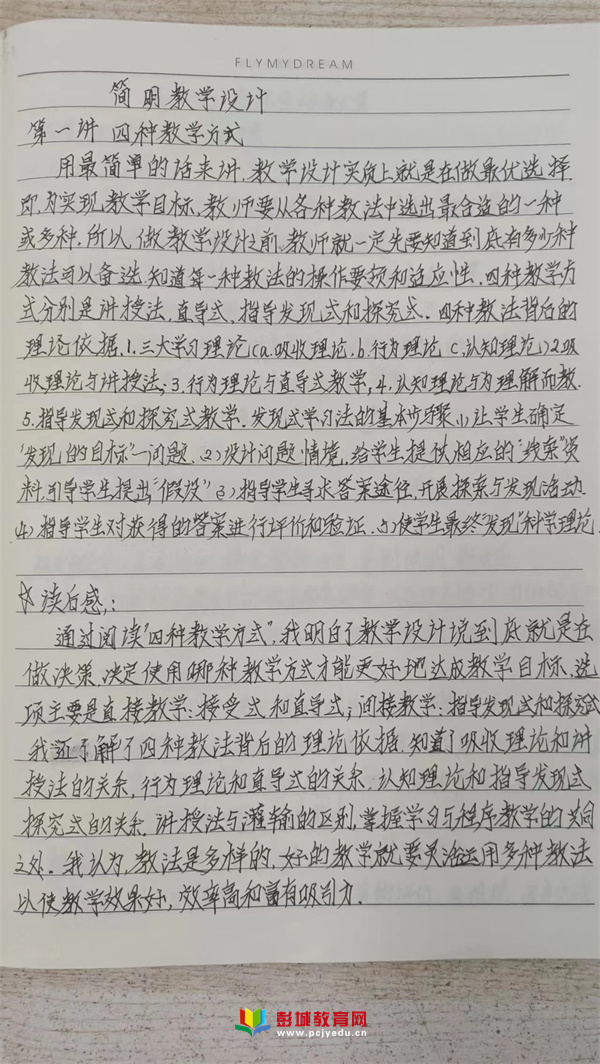 FLYMYDREAM
简明教学设计
第一讲 四种教学方式
用最简单的话来讲,教学设计实质上就是在做最优选择
即,为实现教学目标,教师要从各种教法中选出最合适的一种
或多种.所以,做教学设计之前,教师就一定先要知道到底有多少种
教法可以备选,知道每一种教法的操作要领和适应性.四种教学方
式分别是讲授法,直导式、指导发现式和探究式.四种教法背后的
理论依据,1.三大学习理论(a.吸收理论.b.行为理论 c.认知理论)2.吸
收理论与讲授法;3.行为理论与直导式教学,4.认知理论与为理解而教.
5.指导发现式和探究式教学.发现式学习法的基本步骤(1)让学生确定
“发现的目标”一问题.(2)设计问题情境,给学生提供相应的“线索”资
料,引导学生提出“假设”(3)指导学生寻求答案途径,开展探索与发现活动.
(4)指导学生对获得的答案进行评价和验证.(5)使学生最终“发现”科学理论.
☆读后感:
通过阅读“四种教学方式”,我明白了教学设计说到底就是在
做决策,决定使用哪种教学方式才能更好地达成教学目标,选
项主要是直接教学:接受式和直导式;间接教学:指导发现式和探究式
我还了解了四种教法背后的理论依据,知道了吸收理论和讲
授法的关系,行为理论和直导式的关系,认知理论和指导发现式
探究式的关系.讲授法与灌输的区别,掌握学习与程序教学的共同
之处.我认为,教法是多样的,好的教学就要灵活运用多种教法
以使教学效果好,效率高和富有吸引力.
彭城教育网
www.pcjyedu.cn